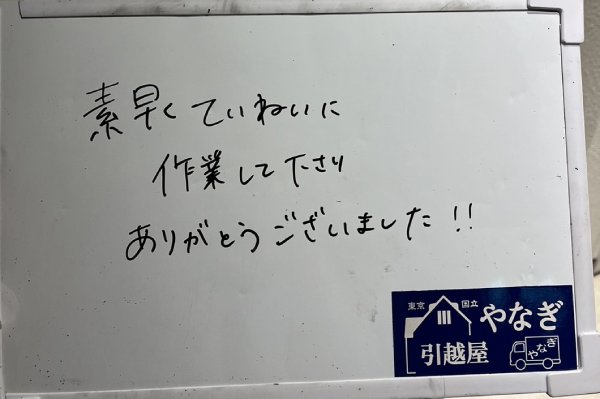 素早くていねいに
作業して下さり
ありがとうございました!!
東京 国立 やなぎ
引越屋 やなぎ